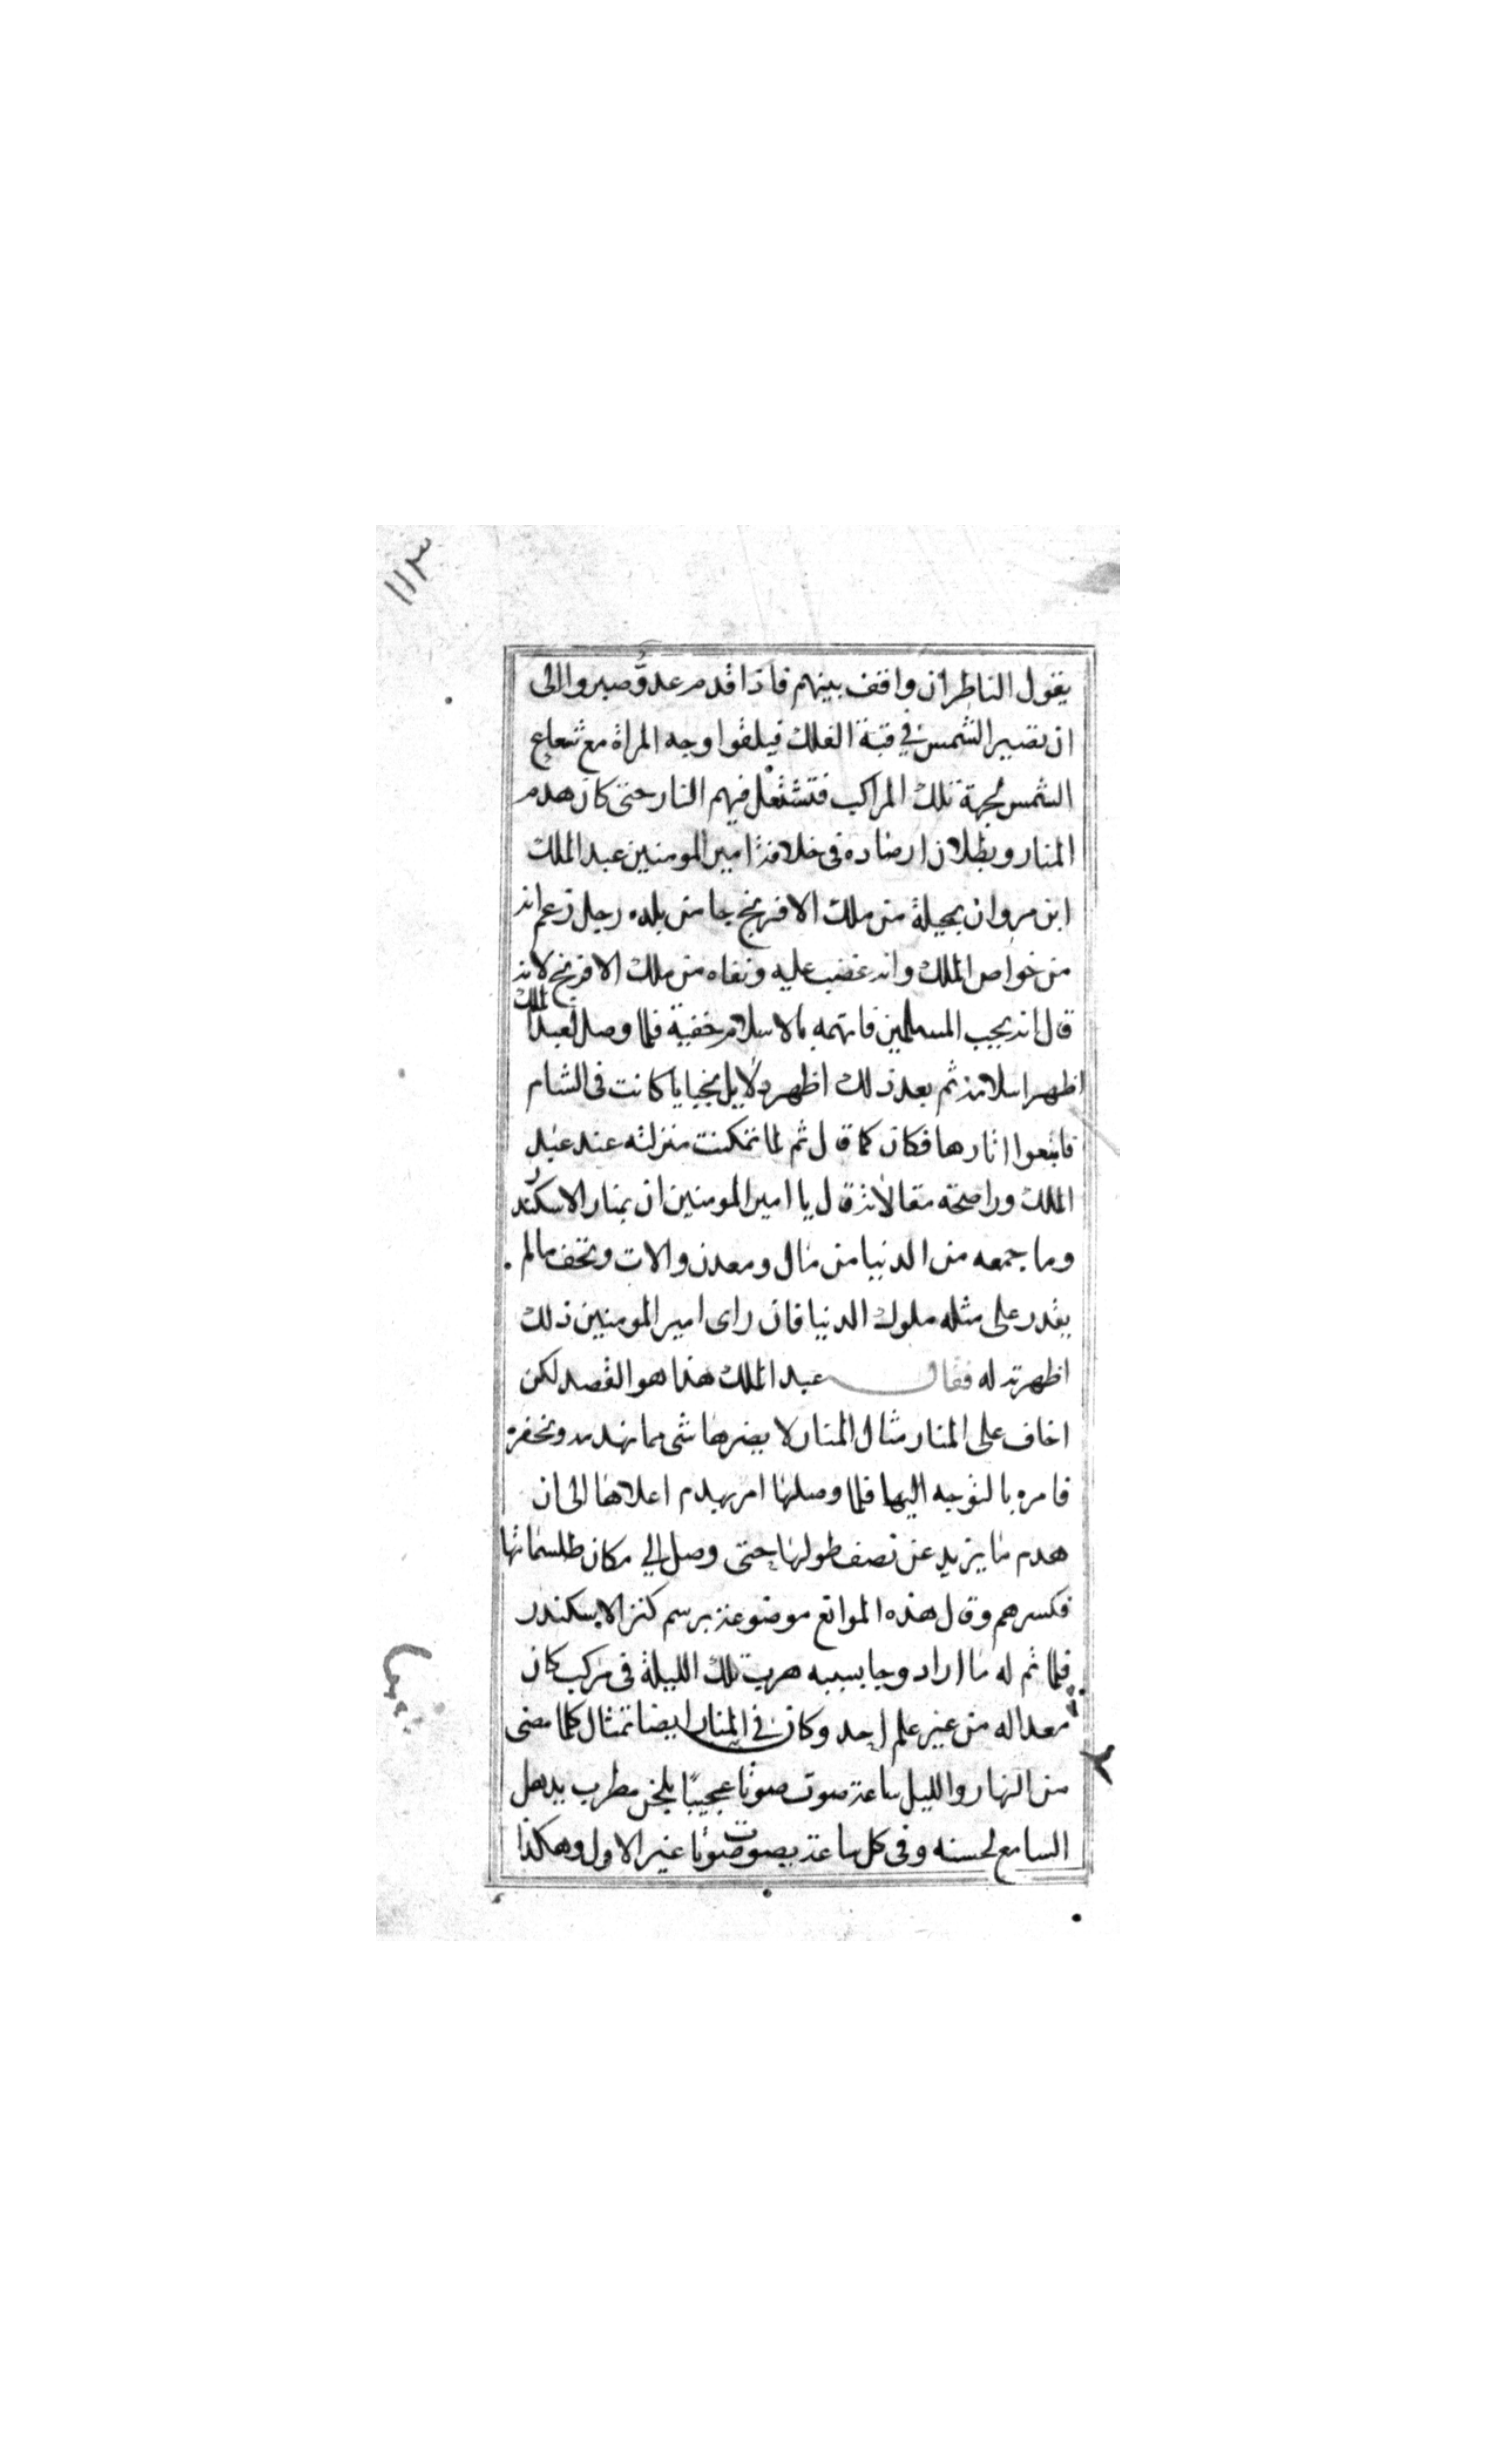 ١١٣
يقول الناظر ان واقف بينهم فاذا قدم عدوّ صبروا الى
ان تصير الشمس في قبة الفلك فيلقوا وجه المراة مع شعاع
الشمس لجهة تلك المراكب فتشتعل فيهم النار حتى كان هدم
المنار وبطلان ارصاده فى خلافة امير المومنين عبد الملك
ابن مروان بحيلة من ملك الافرنج جا من بلده رجل زعم انه
من خواص الملك وانه غضب عليه ونفاه من ملك الافرنج لانه
قال انه يحب المسلمين فاتهمه بالاسلام خفية فلما وصل لعبد الملك
اظهر اسلامه ثم بعد ذلك اظهر دلايل بخبايا كانت فى الشام
فاتبعوا اثارها فكان كما قال ثم لما تمكنت منزلته عند عبد
الملك وراصحة مقالاته قال يا امير المومنين ان بمنار الاسكندر
وما جمعه من الدنيا من مال ومعدن والات وتحف مالم
يقدر على مثله ملوك الدنيا فان راى امير المومنين ذلك
اظهرته له فقال عبد الملك هذا هو القصد لكن
اخاف على المنار مثال المنار لا يضرها شى مما نهدمه ونحفره
فامره بالتوجه اليها فلما وصلها امر بهدم اعلاها الى ان
هدم ما يزيد عن نصف طولها حتى وصل الي مكان طلسماتها
فكسرهم وقال هذه الموانع موضوعة برسم كنز الاسكندر
فلما تم له ما اراد وجا بسببه هرب تلك الليلة فى مركب كان
معدا له من غير علم احد وكان في المنار ايضا تمثال كلما مضى
من النهار والليل ساعة صوت صوتا عجيبًا بلحن مطرب يدهل
السامع لحسنه وفى كل ساعة يصوت صوتا غير الاول وهكذا